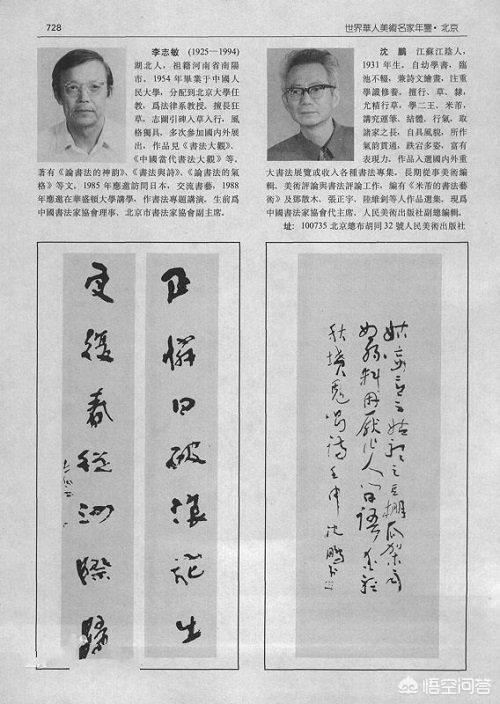 728
世界華人美術名家年鑒・北京
李志敏 (1925—1994)
湖北人，祖籍河南省南陽
市。1954年畢業于中國人
民大學，分配到北京大學任
教，爲法律系教授。擅長狂
草。志圖引碑入草入行，風
格獨具，多次參加國内外展
出，作品見《書法大觀》、
《中國當代書法大觀》等。
著有《論書法的神韵》、《書法與詩》、《論書法的氣
格》等文。1985年應邀訪問日本，交流書藝，1988
年應邀在華盛頓大學講學，作書法專題講演。生前爲
中國書法家協會理事、北京市書法家協會副主席。
沈 鵬 江蘇江陰人，
1931年生。自幼學書，臨
池不輟，兼詩文繪畫，注重
學識修養。擅行、草、隸，
尤精行草，學二王、米芾，
講究運筆、結體、行氣，取
諸家之長，自具風貌，所作
氣韵貫通，跌宕多姿，富有
表現力。作品入選國内外重
大書法展覽或收入各種書法專集。長期從事美術編
輯、美術評論與書法評論工作。編有《米芾的書法藝
術》及鄧散木、張正宇、陸維釗等人作品選集。現爲
中國書法家協會代主席、人民美術出版社副總編輯。
址：100735 北京總布胡同32號人民美術出版社
正憐日破浪花出
更復春從沙際歸
姑妄言之姑聽之豆棚瓜架雨
如絲料
厭作人間語愛聽
秋墳鬼唱詩 壬申 沈鵬
悟空问答